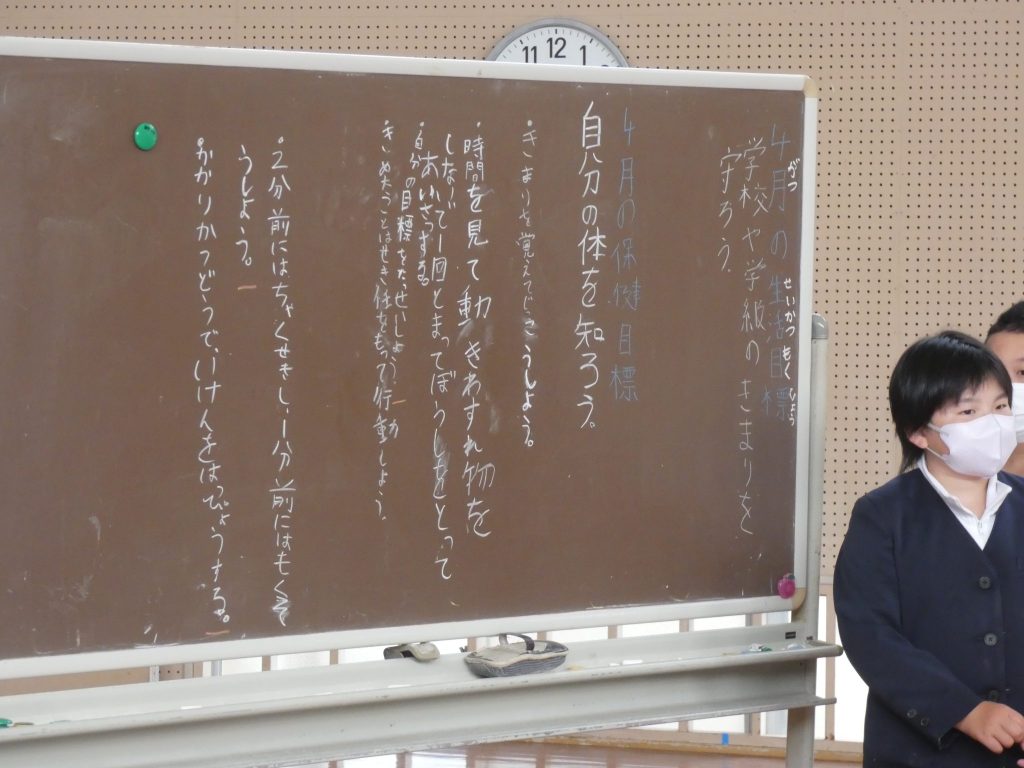 4月の生活目標
がつ せいかつもくひょう
学校や学級のきまりを
守ろう。
4月の保健目標
自分の体を知ろう。
・きまりを覚えて うしよう。
・時間を見て動きわすれ物を
しない。
あいて1回とまってぼうしをとって
あいさつする。
・自分の目標をたっせいしよう。
・きめたことはせき任をもって行動しよう。
・2分前にはちゃくせきし1分前にはもくそ
うしよう。
・かかりかつどうで、いけんをはぴょうする。
11 12 1